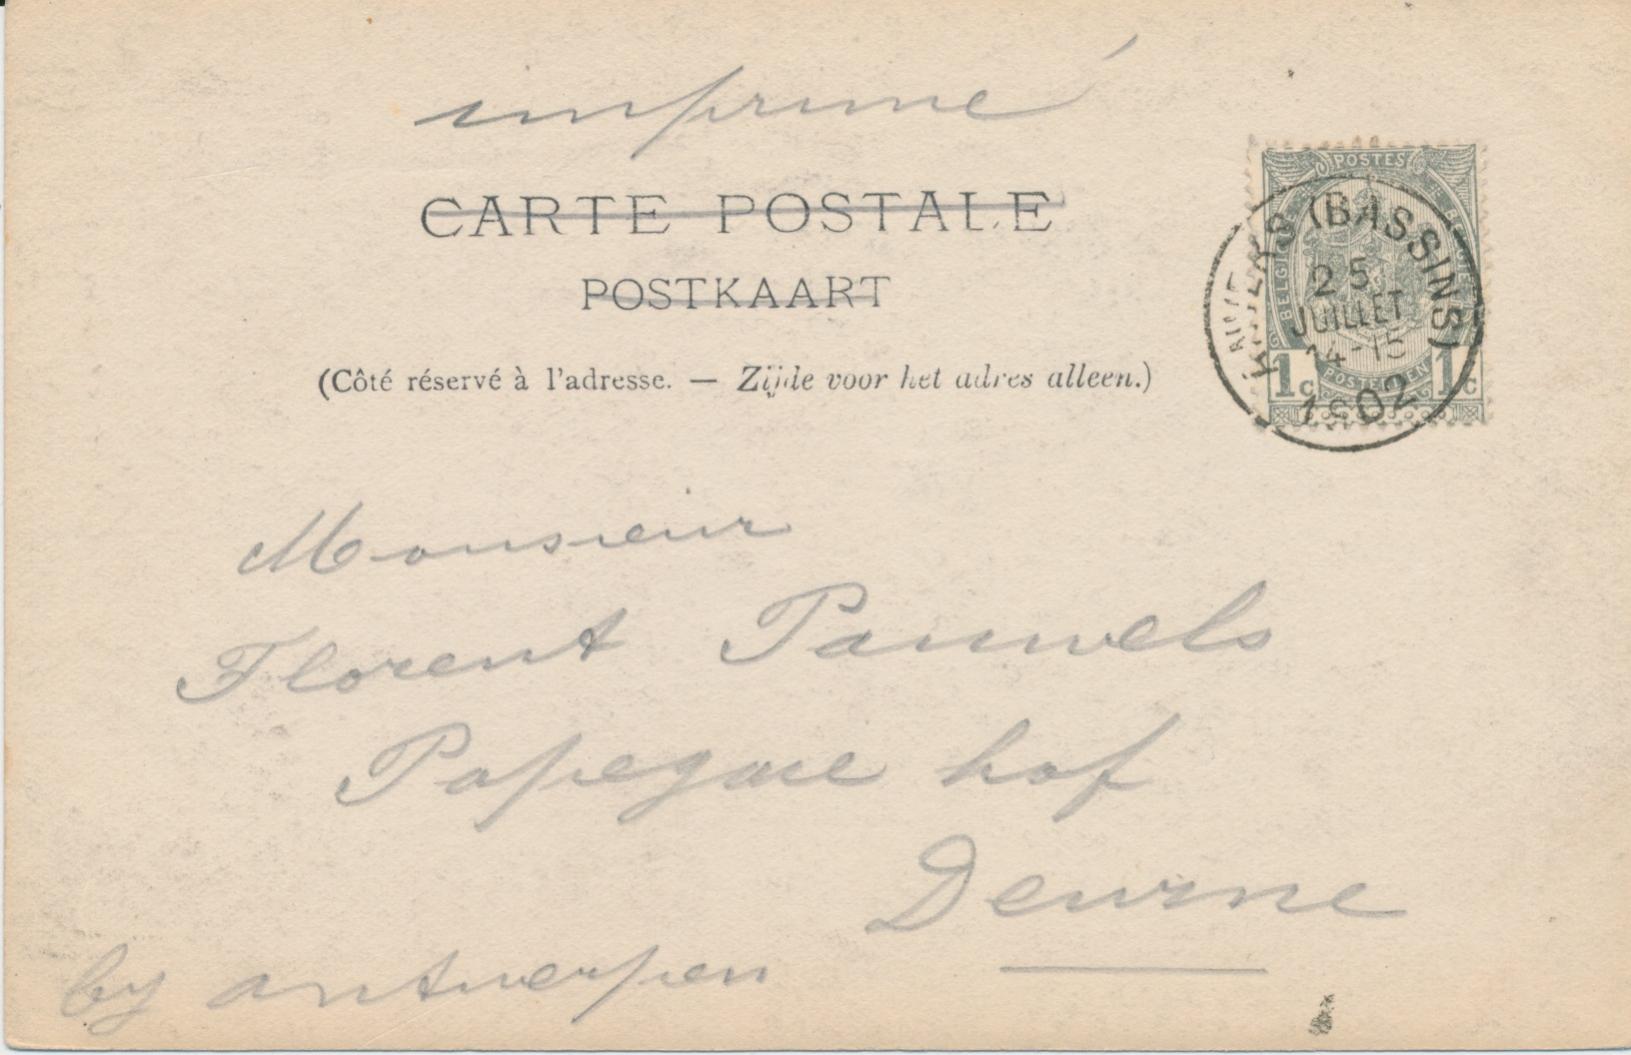 imprimé
CARTE POSTALE
POSTKAART
(Côté réservé à l'adresse. — Zijde voor het adres alleen.)
POSTES
BELGIQUE
ANVERS (BASSINS)
25
JUILLET
14-15
1902
1c
1c
Monsieur
Florent Pauwels
Papegaie hof
Deurne
by Antwerpen